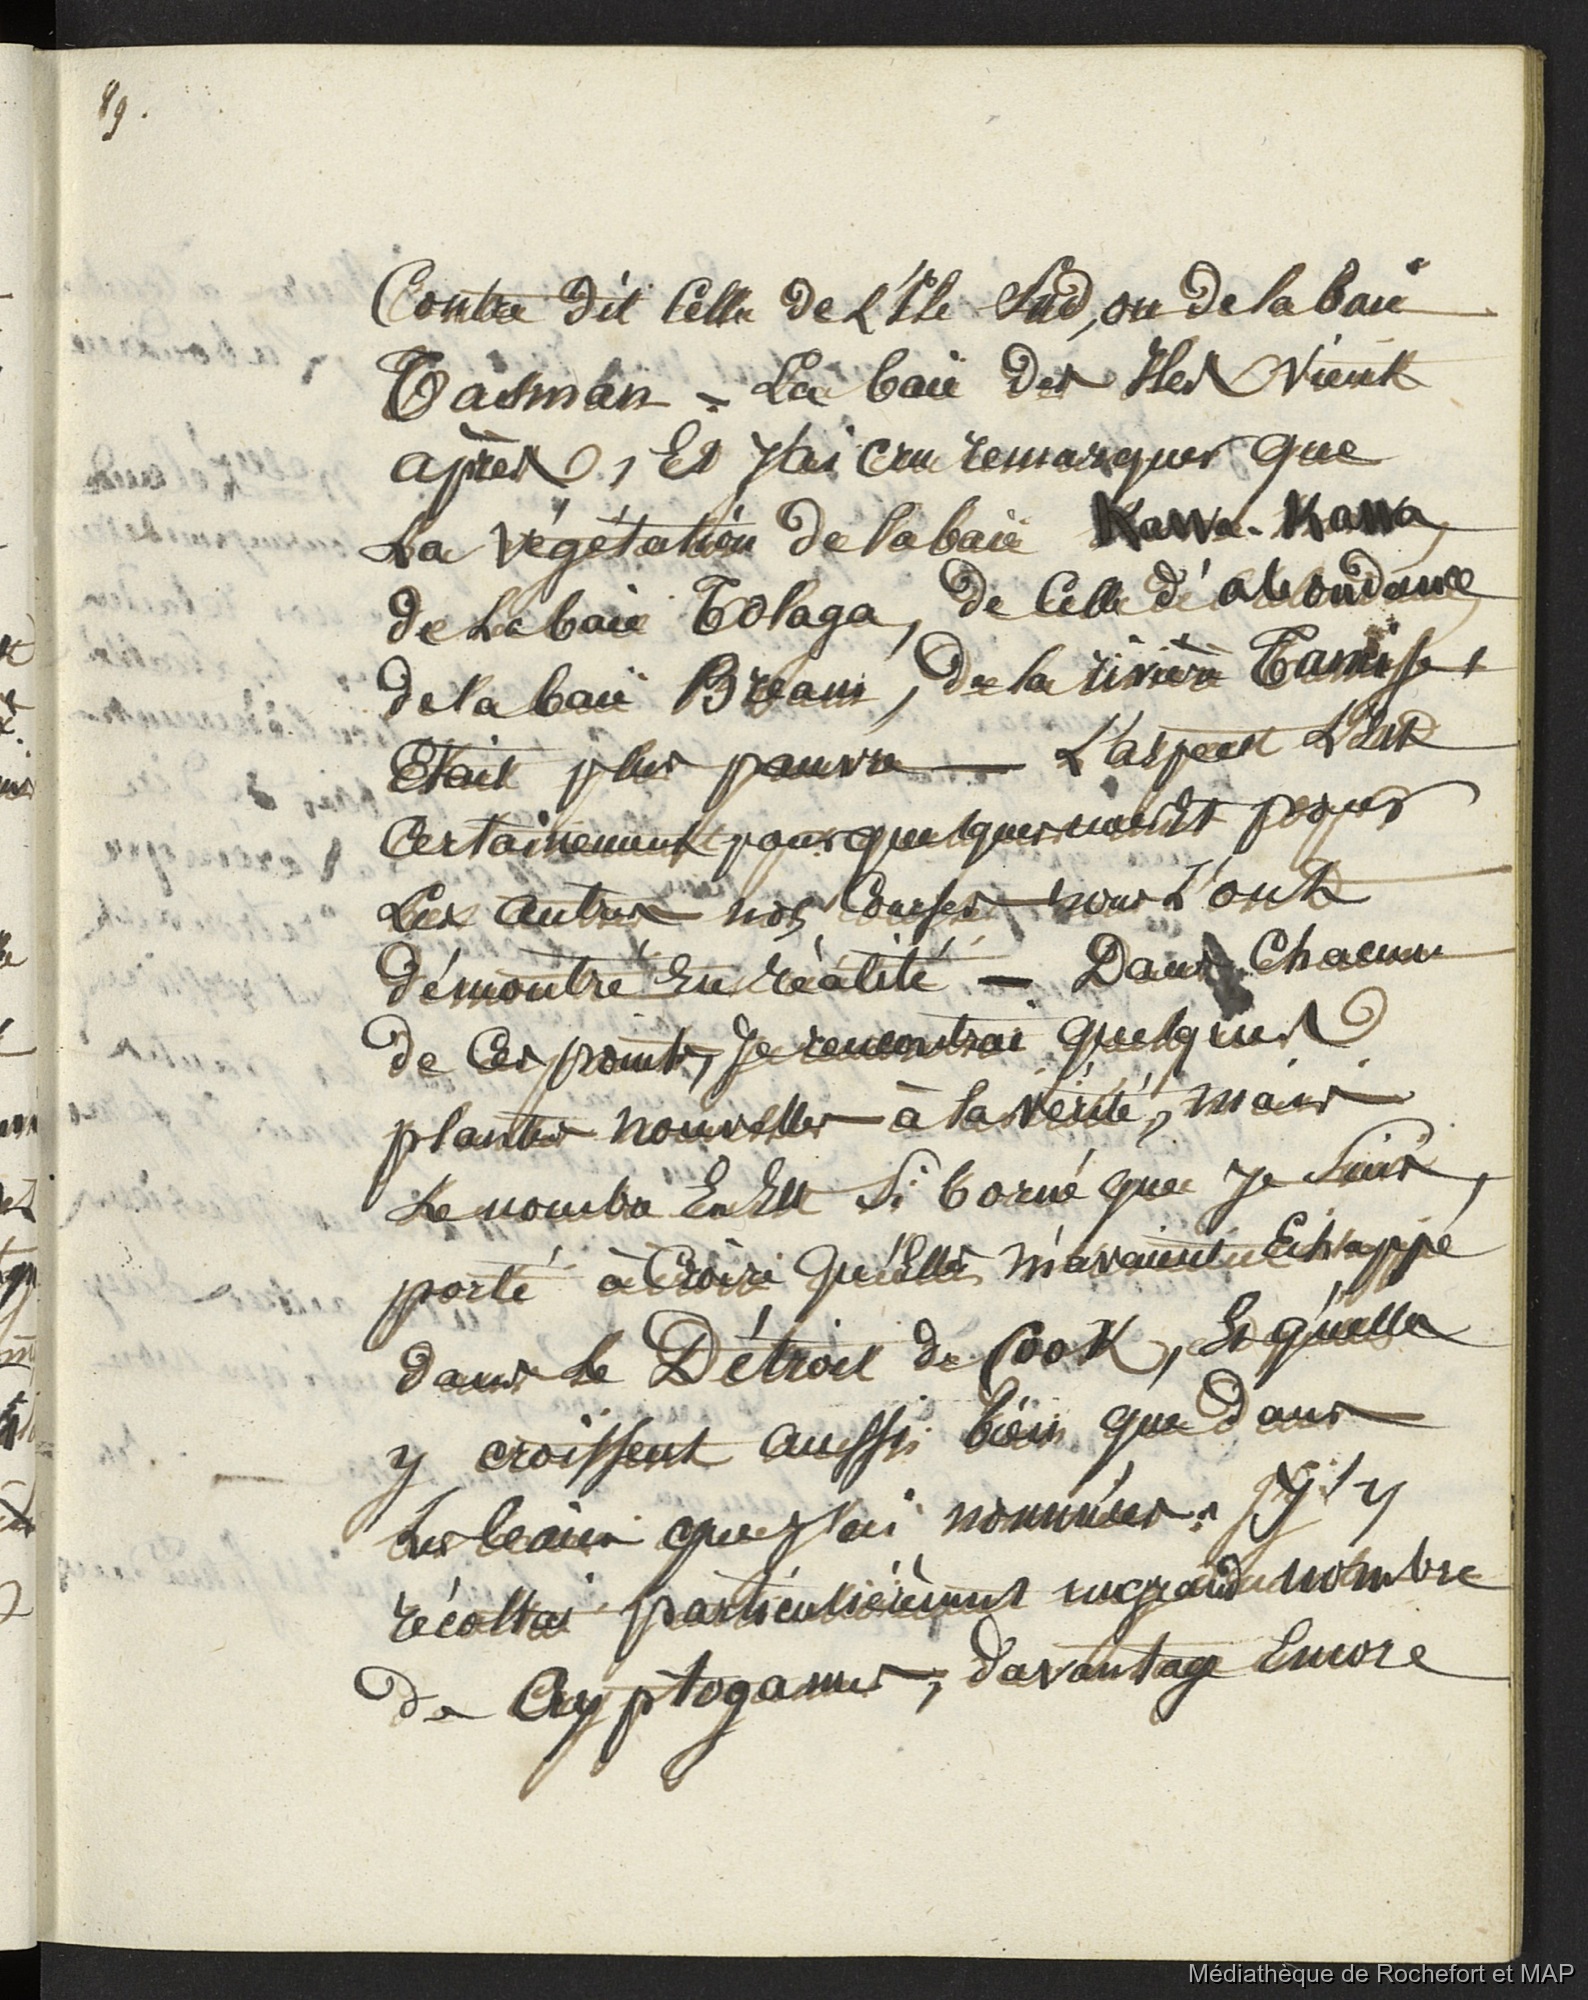 89.
Contre dit Celle de L'Ile Sud, ou de la baie
Tasman - La baie des Iles vient
après, Et J'ai cru remarquer que
La végétation de la baie Kawa-Kawa,
de La baie Tolaga, de Celle d'abondance,
de la baie Bream, de la rivière Tamise,
Etait plus pauvre — L'aspect L'est
Certainement pour quelques pour
Les Autres nos Courses nous L'ont
démontré En réalité — Dans Chacun
de Ces points, Je rencontrai quelques
plantes nouvelles à la vérité, mais
Le nombre En Est Si borné que Je Suis,
porté à Croire qu'Elles m'avaient Echappé
dans Le Détroit de Cook, Et qu'elles
y croissent aussi bien que dans
Les baies que J'ai nommées. J'y
récoltai particulièrement un grand nombre
de Cryptogames, davantage Encore
Médiathèque de Rochefort et MAP